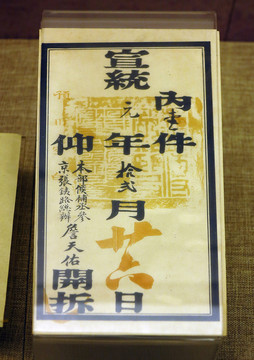 內壹件
宣統元年拾弍月廿六日
仰
本部候補丞參
京張鐵路總辦
詹天佑
開拆